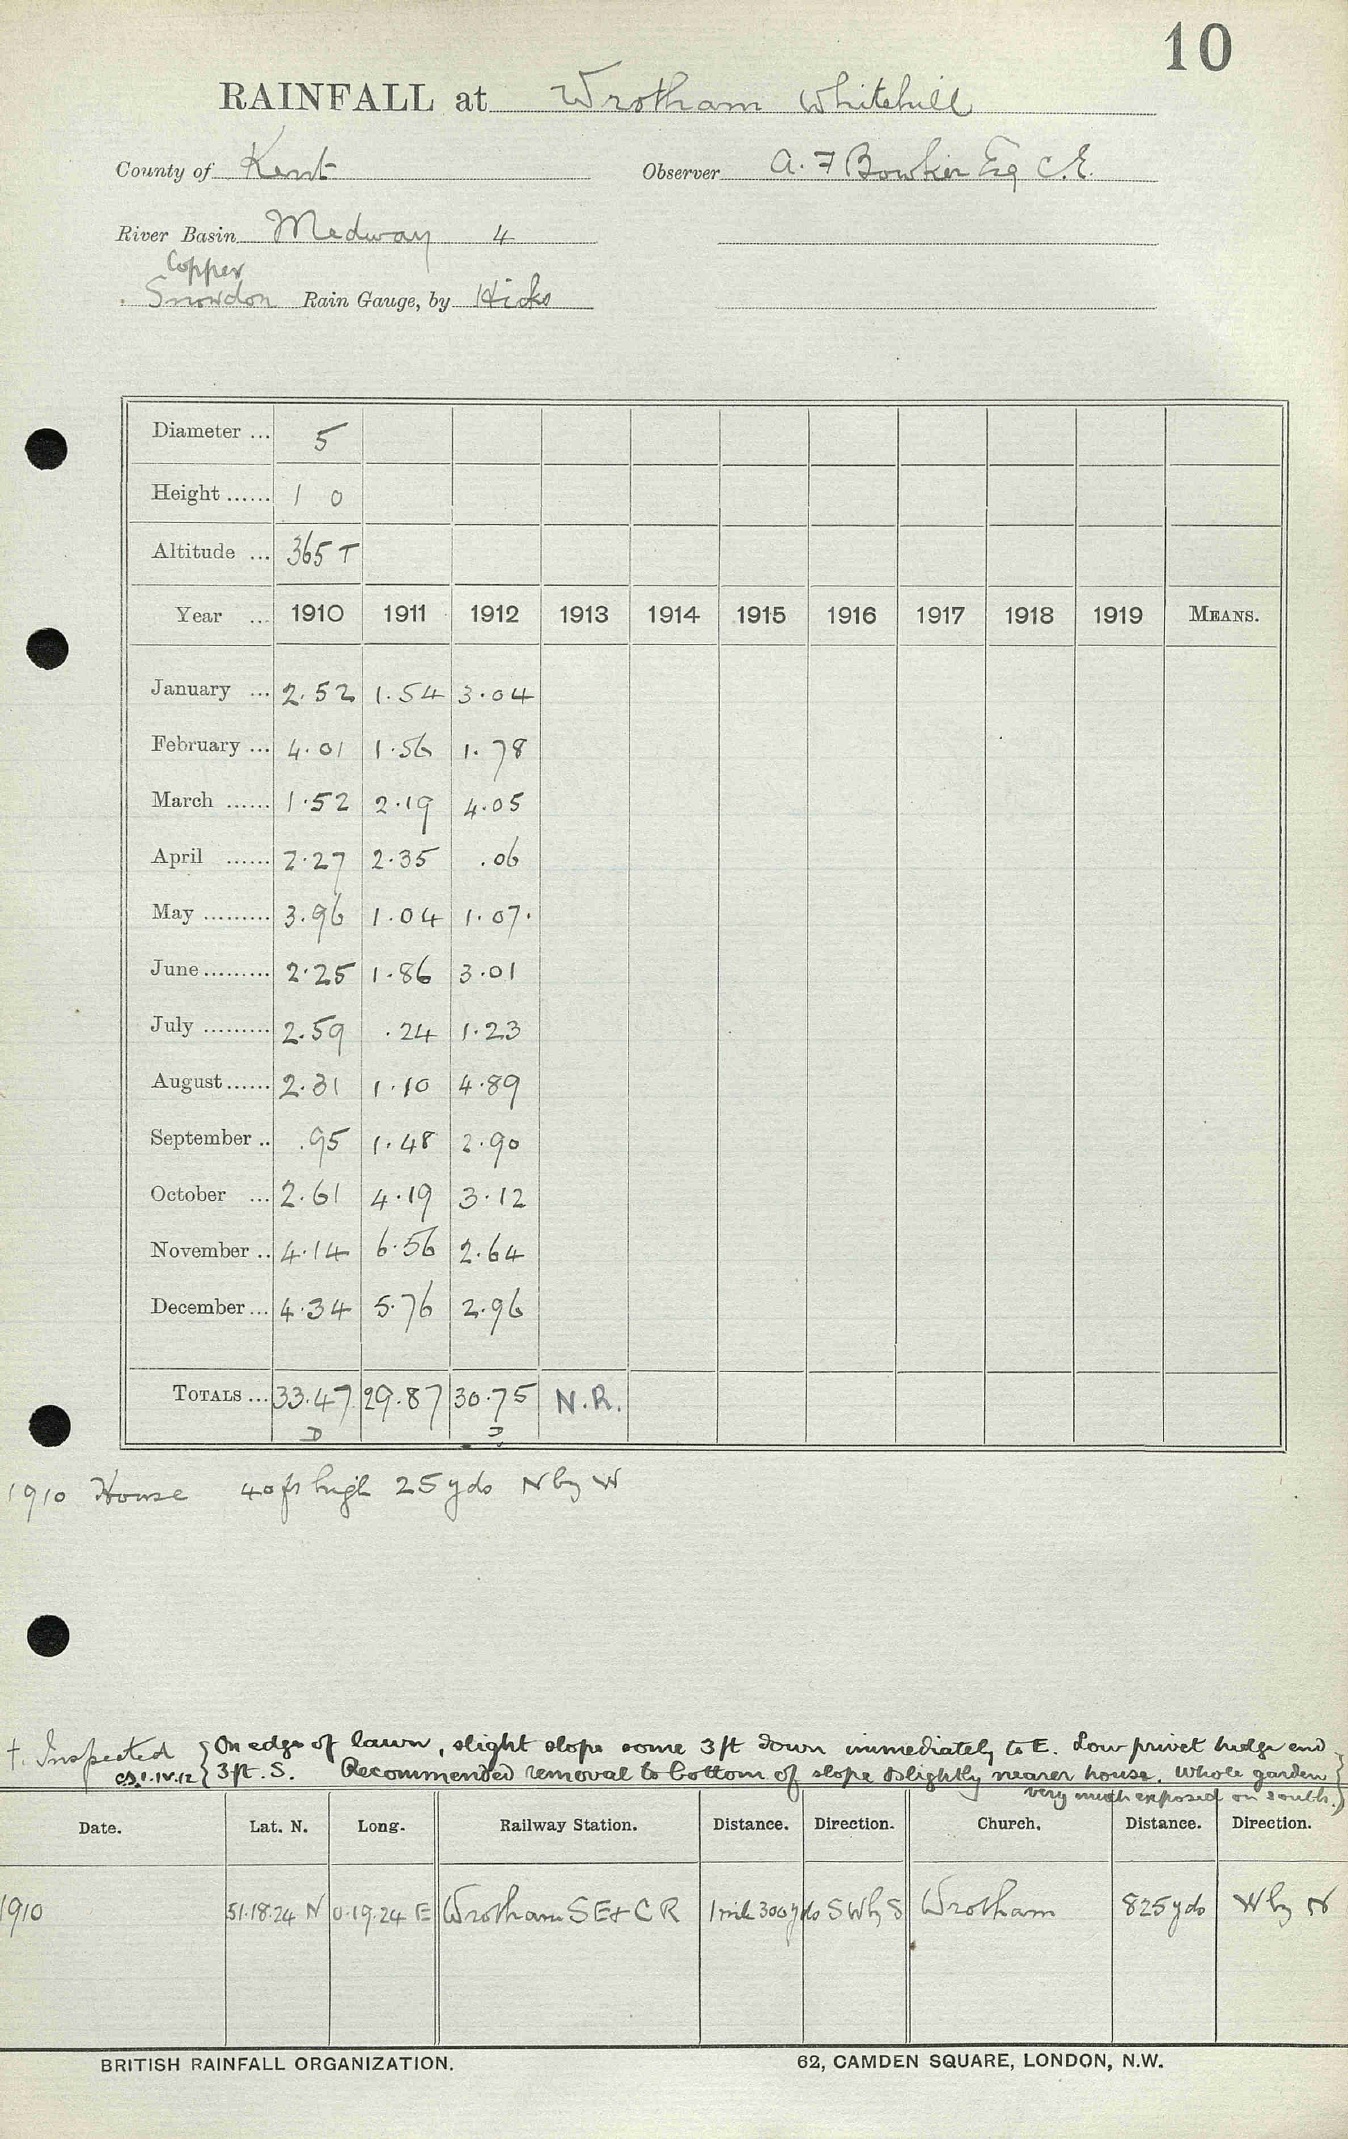 10
RAINFALL at Wrotham Whitehill
County of Kent Observer A. F Bowker Esq C.E.
River Basin Medway 4
Copper
Snowdon Rain Gauge, by Hicks
Diameter ... 5
Height ...... 1 0
Altitude ... 365 T
Year ... 1910 1911 1912 1913 1914 1915 1916 1917 1918 1919 MEANS.
January ... 2.52 1.54 3.04
February ... 4.01 1.56 1.78
March ...... 1.52 2.19 4.05
April ...... 2.27 2.35 .06
May ......... 3.96 1.04 1.07.
June ......... 2.25 1.86 3.01
July ......... 2.59 .24 1.23
August ...... 2.31 1.10 4.89
September .. .95 1.48 2.90
October ... 2.61 4.19 3.12
November .. 4.14 6.56 2.64
December ... 4.34 5.76 2.96
TOTALS ... 33.47 29.87 30.75 N.R.
D D
1910 House 40 ft high 25 yds N by W
†. Inspected { On edge of lawn, slight slope some 3 ft down immediately to E. Low privet hedge end
1.IV.12 { 3 ft. S. Recommended removal to bottom of slope & slightly nearer house. Whole garden }
very much exposed on south. )
Date. Lat. N. Long. Railway Station. Distance. Direction. Church. Distance. Direction.
1910 51.18.24 N 0.19.24 E Wrotham S E & C R 1 mile 300 yds S W by S Wrotham 825 yds W by N
BRITISH RAINFALL ORGANIZATION. 62, CAMDEN SQUARE, LONDON, N.W.